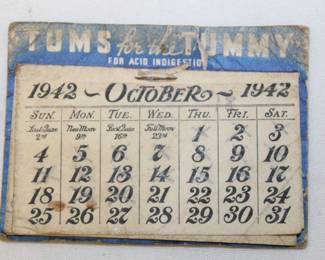 TUMS for the TUMMY
FOR ACID INDIGESTION
1942 ~ OCTOBER ~ 1942
SUN. MON. TUE. WED. THU. FRI. SAT.
Last Quar. 2nd New Moon 9th First Quar. 16th Full Moon 23rd 1 2 3
4 5 6 7 8 9 10
11 12 13 14 15 16 17
18 19 20 21 22 23 24
25 26 27 28 29 30 31